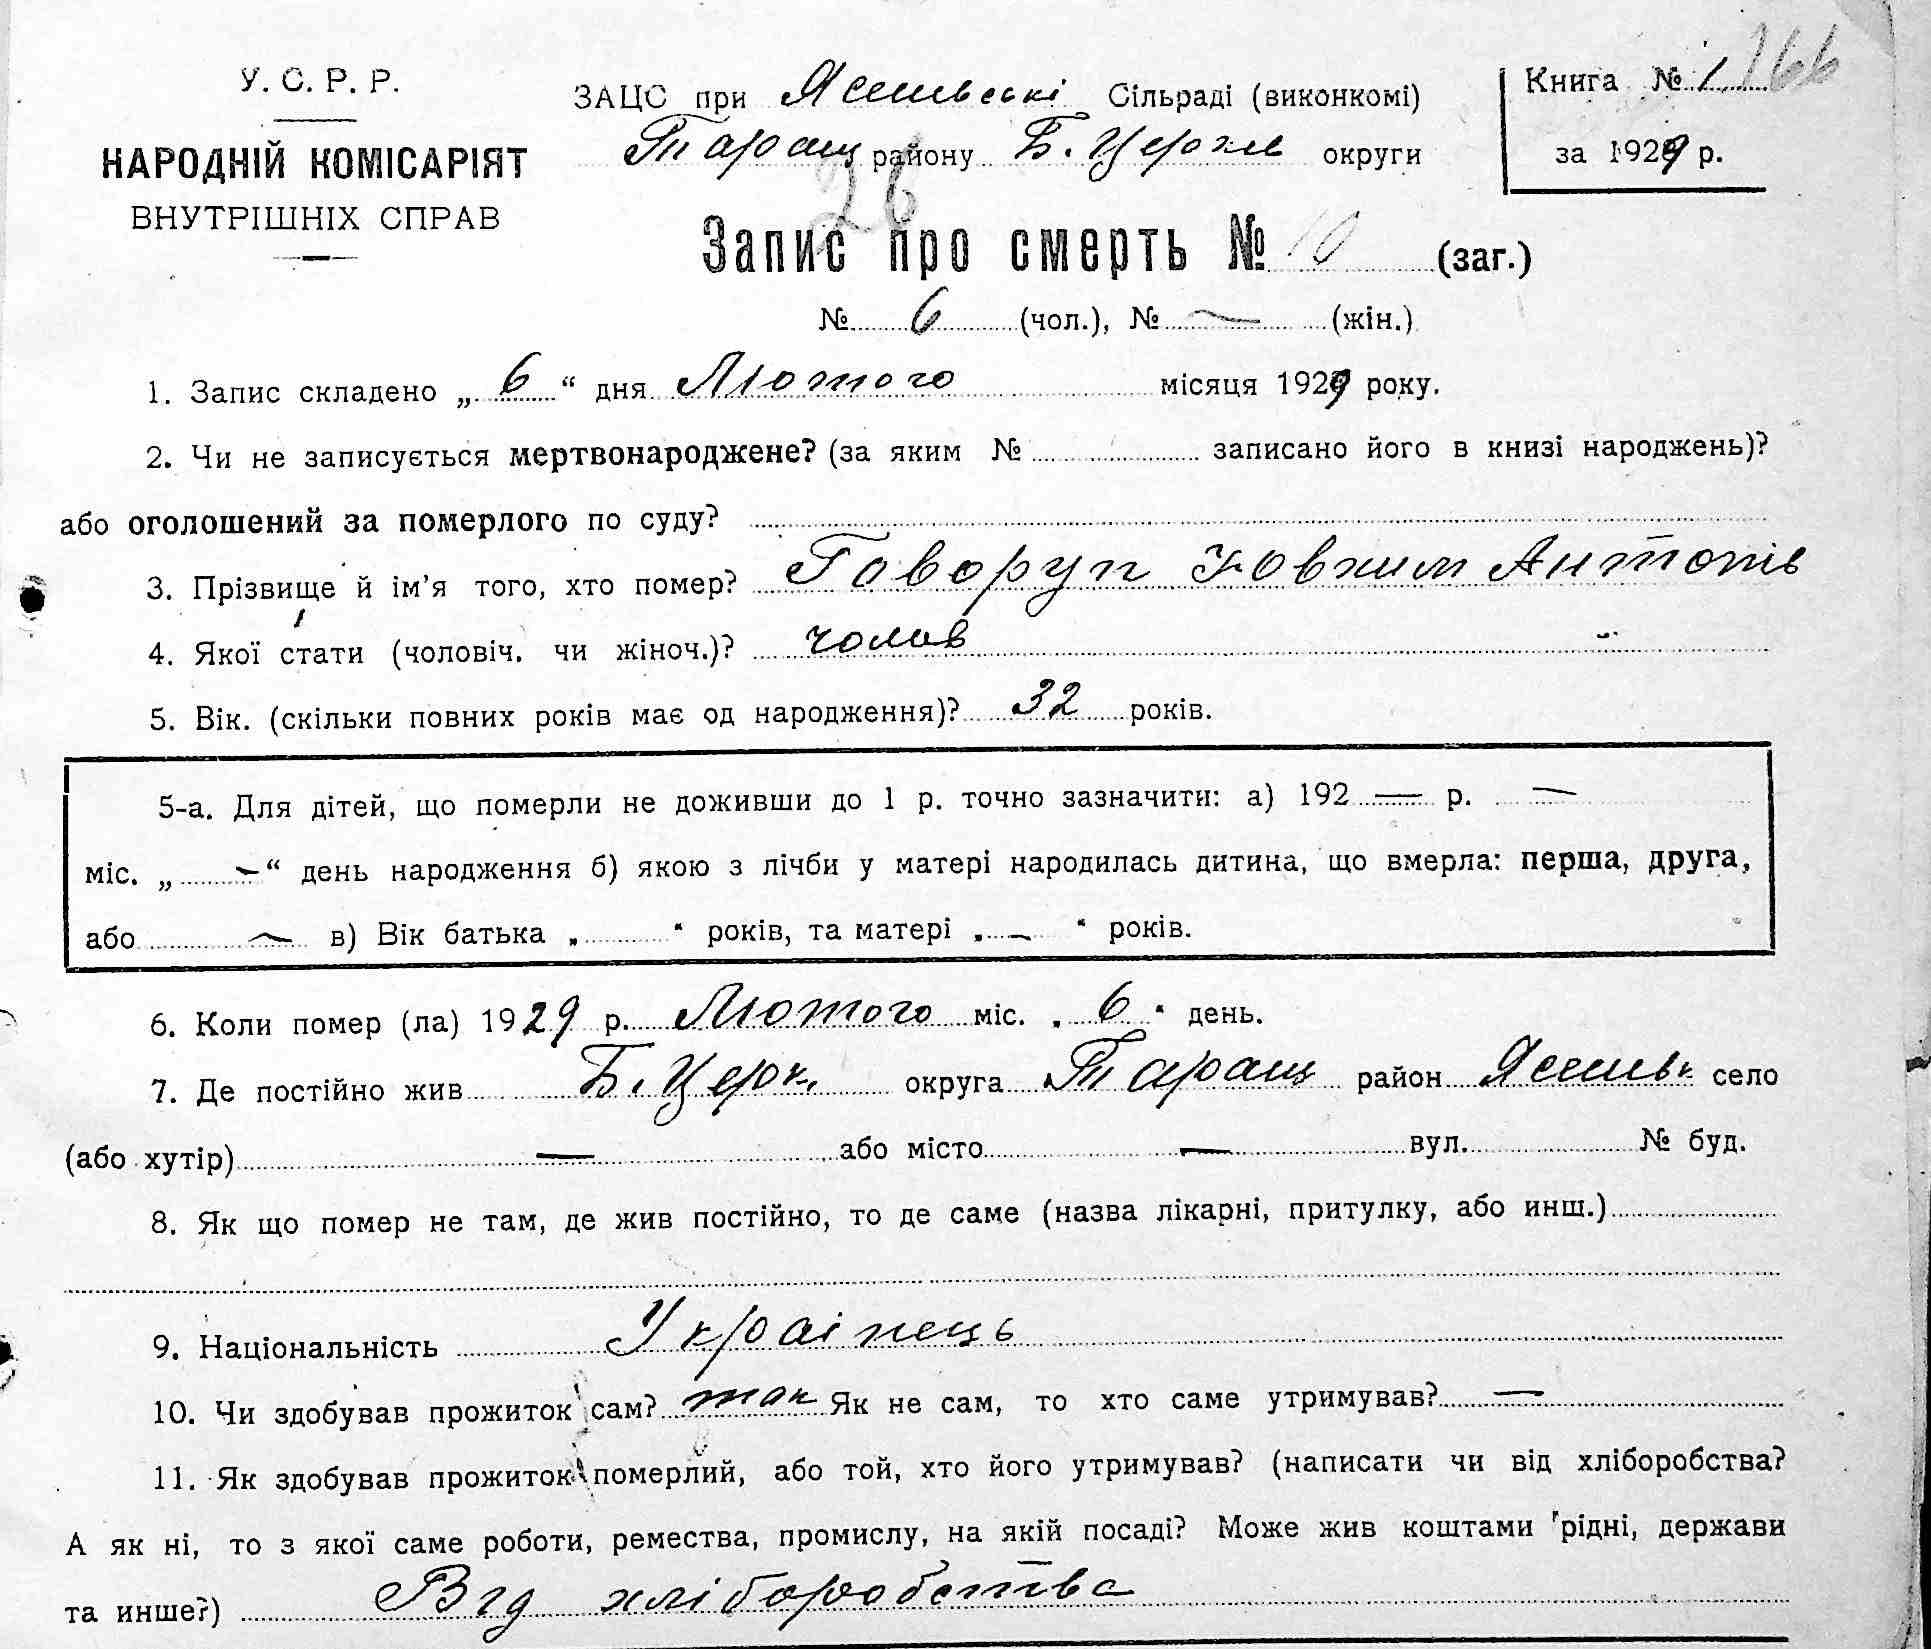 У. С. Р. Р.
НАРОДНІЙ КОМІСАРІЯТ
ВНУТРІШНІХ СПРАВ
ЗАЦС при Ясенівські Сільраді (виконкомі)
Таращ району Б. Церкв округи
Книга № 1 166
за 1929 р.
26
Запис про смерть № 10 (заг.)
№ 6 (чол.), № — (жін.)
1. Запис складено „ 6 “ дня Лютого місяця 1929 року.
2. Чи не записується мертвонароджене? (за яким № записано його в книзі народжень)?
або оголошений за померлого по суду?
3. Прізвище й ім’я того, хто помер? Говорун Антонів
4. Якої стати (чоловіч. чи жіноч.)? чолов
5. Вік. (скільки повних років має од народження)? 32 років.
5-а. Для дітей, що померли не доживши до 1 р. точно зазначити: а) 192 — р. —
міс. „ — “ день народження б) якою з лічби у матері народилась дитина, що вмерла: перша, друга,
або — в) Вік батька „ “ років, та матері „ — “ років.
6. Коли помер (ла) 1929 р. Лютого міс. „ 6 “ день.
7. Де постійно жив Б. Церк. округа Таращ район Ясенівк село
(або хутір) — або місто — вул. № буд.
8. Як що помер не там, де жив постійно, то де саме (назва лікарні, притулку, або инш.)
9. Національність Українець
10. Чи здобував прожиток сам? так Як не сам, то хто саме утримував? —
11. Як здобував прожиток померлий, або той, хто його утримував? (написати чи від хліборобства?
А як ні, то з якої саме роботи, ремества, промислу, на якій посаді? Може жив коштами рідні, держави
та инше?) Від хліборобства